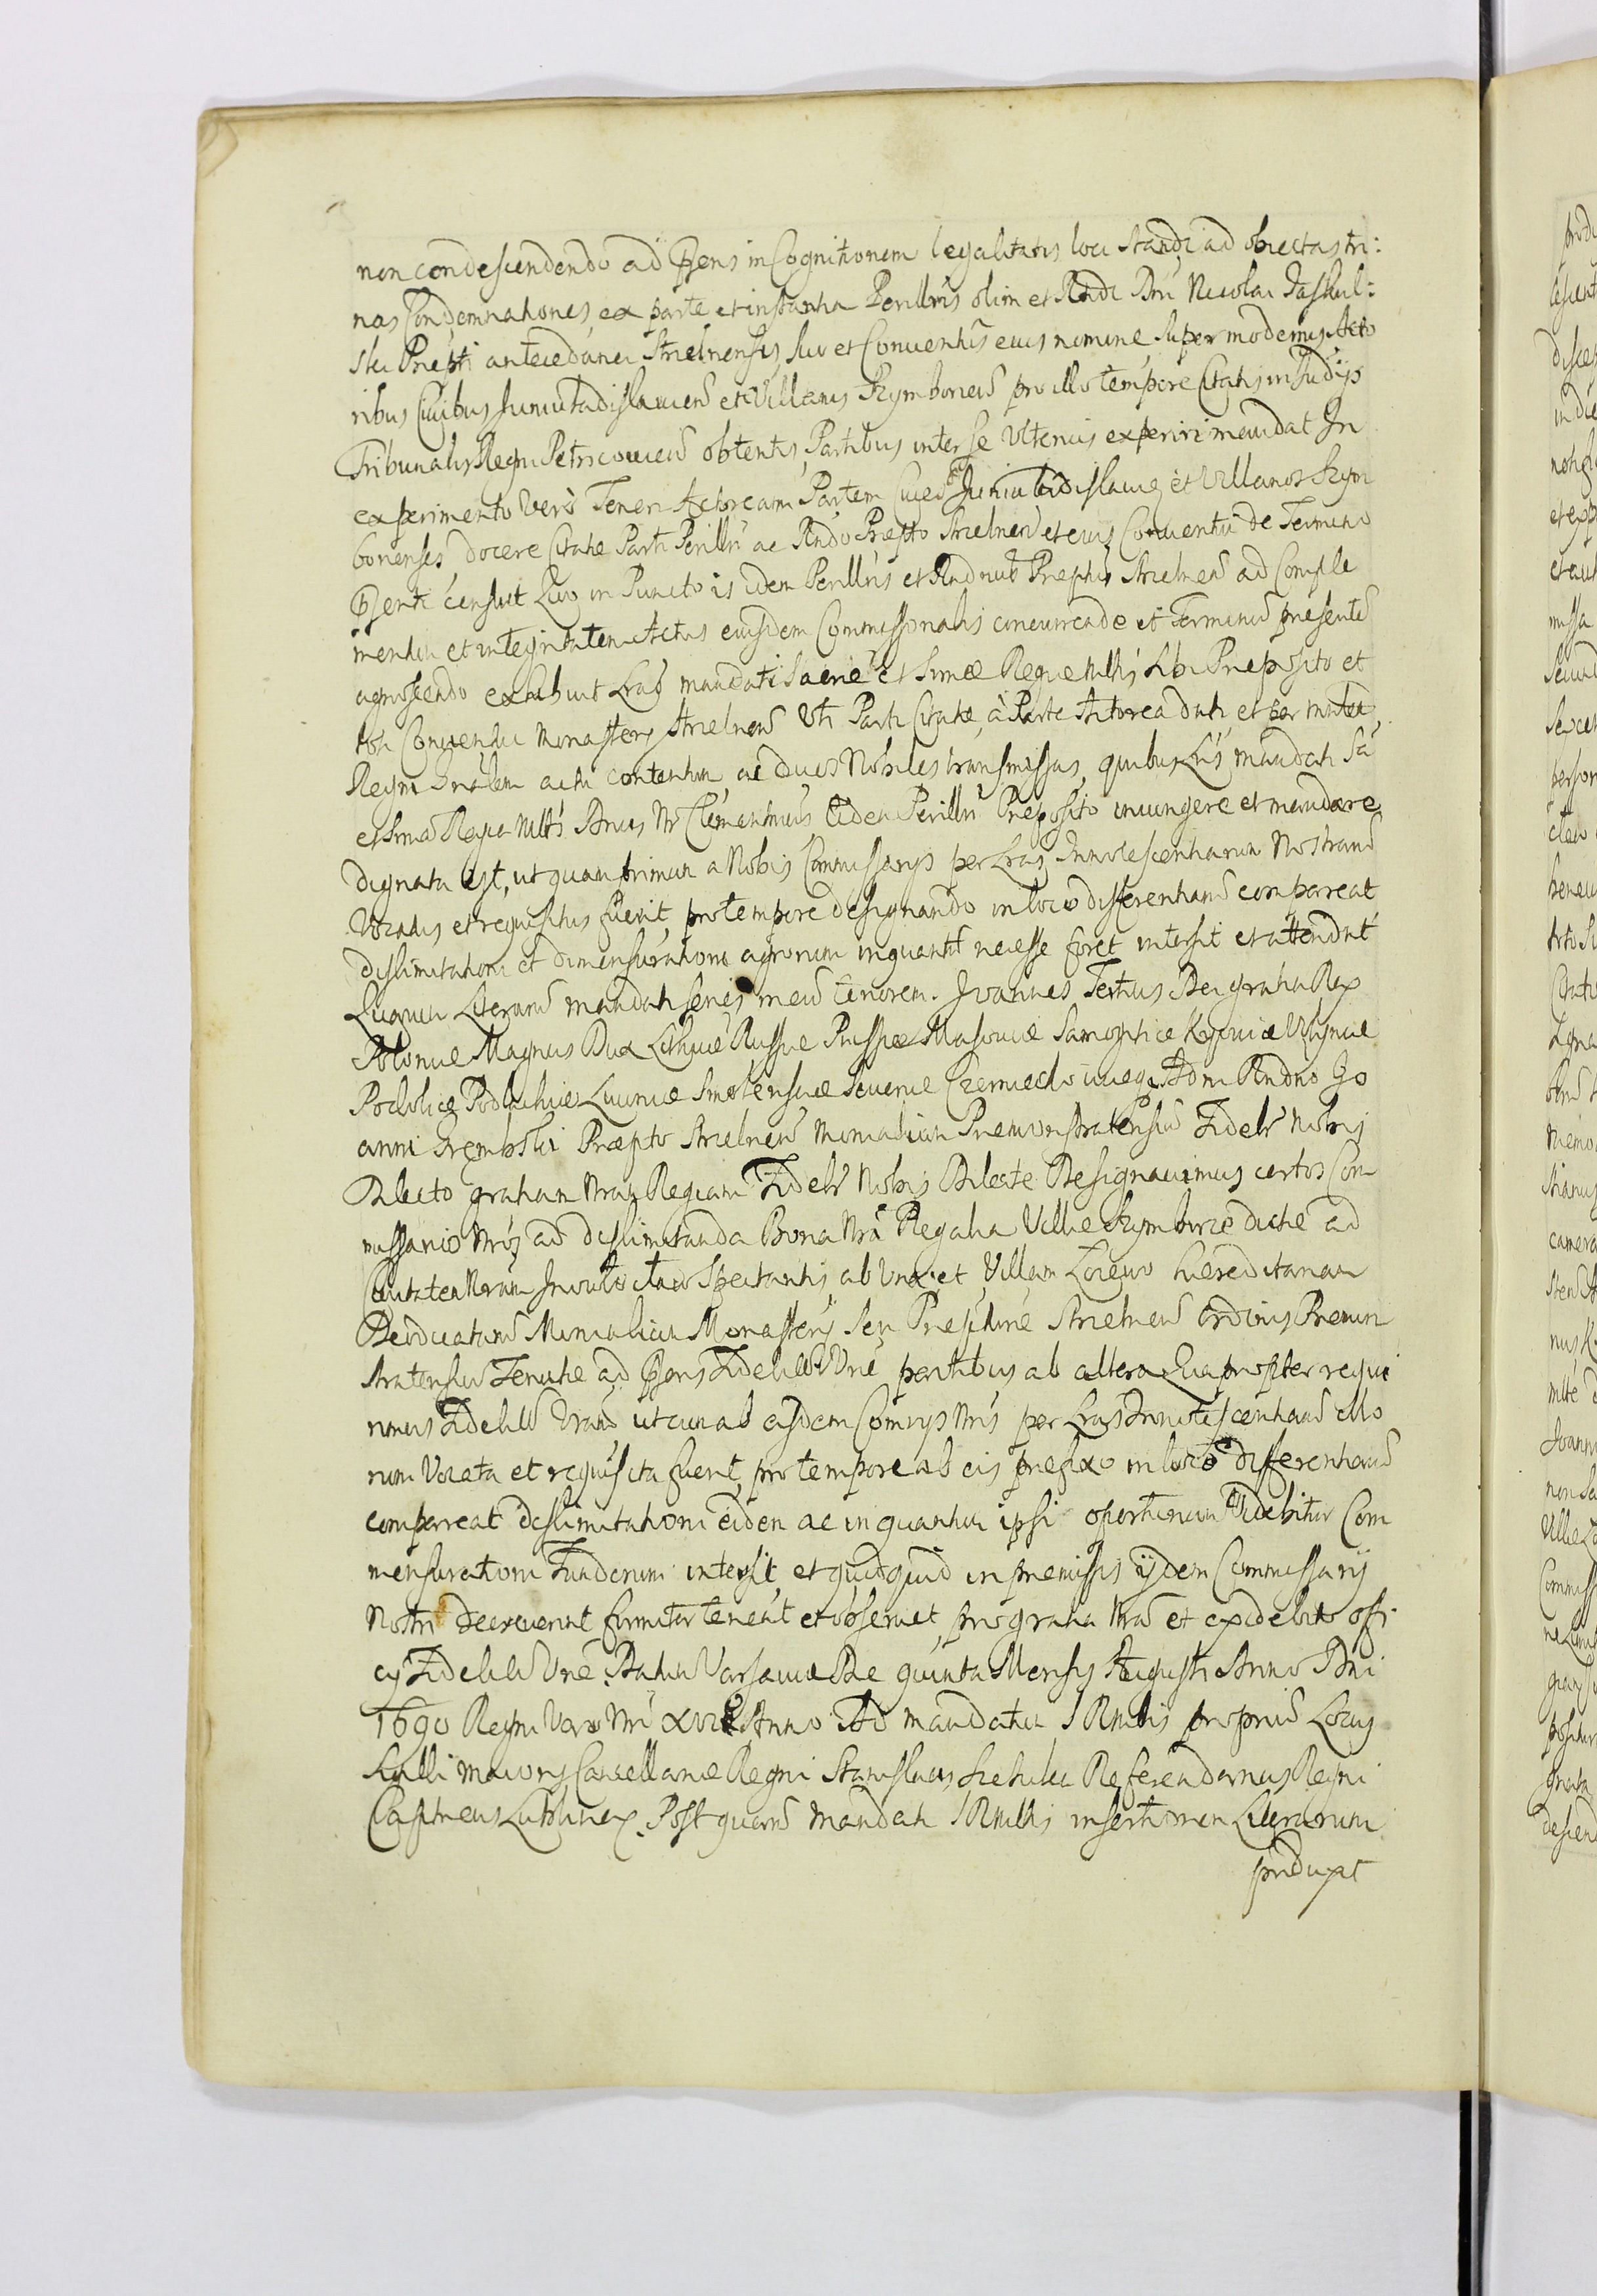 non condescendendo ad Pñens in Cognitionem legalitatis loci standi ad obiectas tri:
nas Condemnationes, ex parte et instantia Perillris olim et Rndi Dni Nicolai Jaskul:
ski Præpti antecedanei Strelnensis, suo et Conventus eius nomine super modernis Acto
ribus Civibus Juniuladislaviens̃ et Villanis Szymboriens̃ pro illo tempore Citatis in Judijs
Tribunalis Regni Petricoviens̃ obtentis, Partibus inter se Ulterius experiri mandat In
experimento Vero Teneri Actoream Partem Cives Juniuladislavieñ et Villanos Szym
borienses docere Citatæ Parti Perillri ac Rndo Præpto Strelneñ et eius Conventui de Termino
Pñenti censuit Quo in Puncto is idem Perillris et Rndmus Præptus Strelneñ ad Comple
mentum et integritatem Actus eiusdem Commissorialis concurrendo et Terminum presentẽ
agnoscendo exhibuit Lras mandati Sacræ et Smæ Regiæ Mttis sibi Præposito et
toti Conventui Monasterij Strelneñ Uti Parti Citatæ, à Parte Actorea dati et per Mntrum
Regni Gnalem acti contentum ac duos Nobiles transmissas, quibus Lris mandati Sa
et Sma Regia Mttis Dnus Nr Clementmus Eidem Perillri Præposito iniungere et mandare
dignata est, ut quam primum a Nobis Commissarijs per Lras Innotescentiarum Nostraru͂
Vocatus et requisitus fuerit, pro tempore designando in loco differentiaru͂ compareat
dislimitationi et dimensurationi agrorum inquantu͂ necesse foret intersit et attendat
Quarum Literaru͂ mandati seriẽs in eu͂ tenorem. Joannes Tertius Dei gratia Rex
Poloniæ Magnus Dux Lithuæ Russiæ Prussiæ Masoviæ Samogitiæ Kyoviæ Volyniæ
Podoliæ Podlachiæ Livoniæ Smolensciæ Severiæ Czerniechoviæq Adm Rndno Jo
anni Trembski Præpto Strelneñ Monialium Præmonstratensiu͂ Fideli Nobis
Dilecto gratiam Nram Regiam Fidelr Nobis Dilecte Designavimus certos Com
missarios Nros ad dislimitanda Bona Nra Regalia Villæ Szymborze dictæ ad
Civitatem Nram Inowlocław Spectantis, ab Una; et, Villam Łoiewo hæreditariam
Deodicataru͂ Monialium Monasterij seu Præpturæ Strelneñ Ordinis Premon
stratensiu͂ Tenutæ ad Pñens Fidelitis Vræ partibus ab altera Quapropter requi
rimus Fidelitt Vram, ut cum ab eisdem Comrijs Nris per Lras Innotescentiaru͂ illo
rum Vocata et requisita fuerit, pro tempore ab eis præfixo in loco differentiaru͂
compareat dislimitationi eidem ac in quantum ipsi oportunum Videbitur Com
mensurationi Fundorum intersit, et quidquid in præmissis ijdem Commissarij
Nostri decreverint firmiter teneat et observet, pro gratia Nra et ex debito offi
cij Fidelitt Vræ. Datum Varsaviæ Die quinta Mensis Augusti Anno Dni
1690 Regni Vero Nri XVII Anno Ad mandatum S R Mttis proprium Locus
Sigilli maioris Cancellariæ Regni Stanislaus Szczuka Referendarius Regni
Captneus Lublinen̄. Post quaru͂ mandati S R Mttis insertionem Literarum
produxit